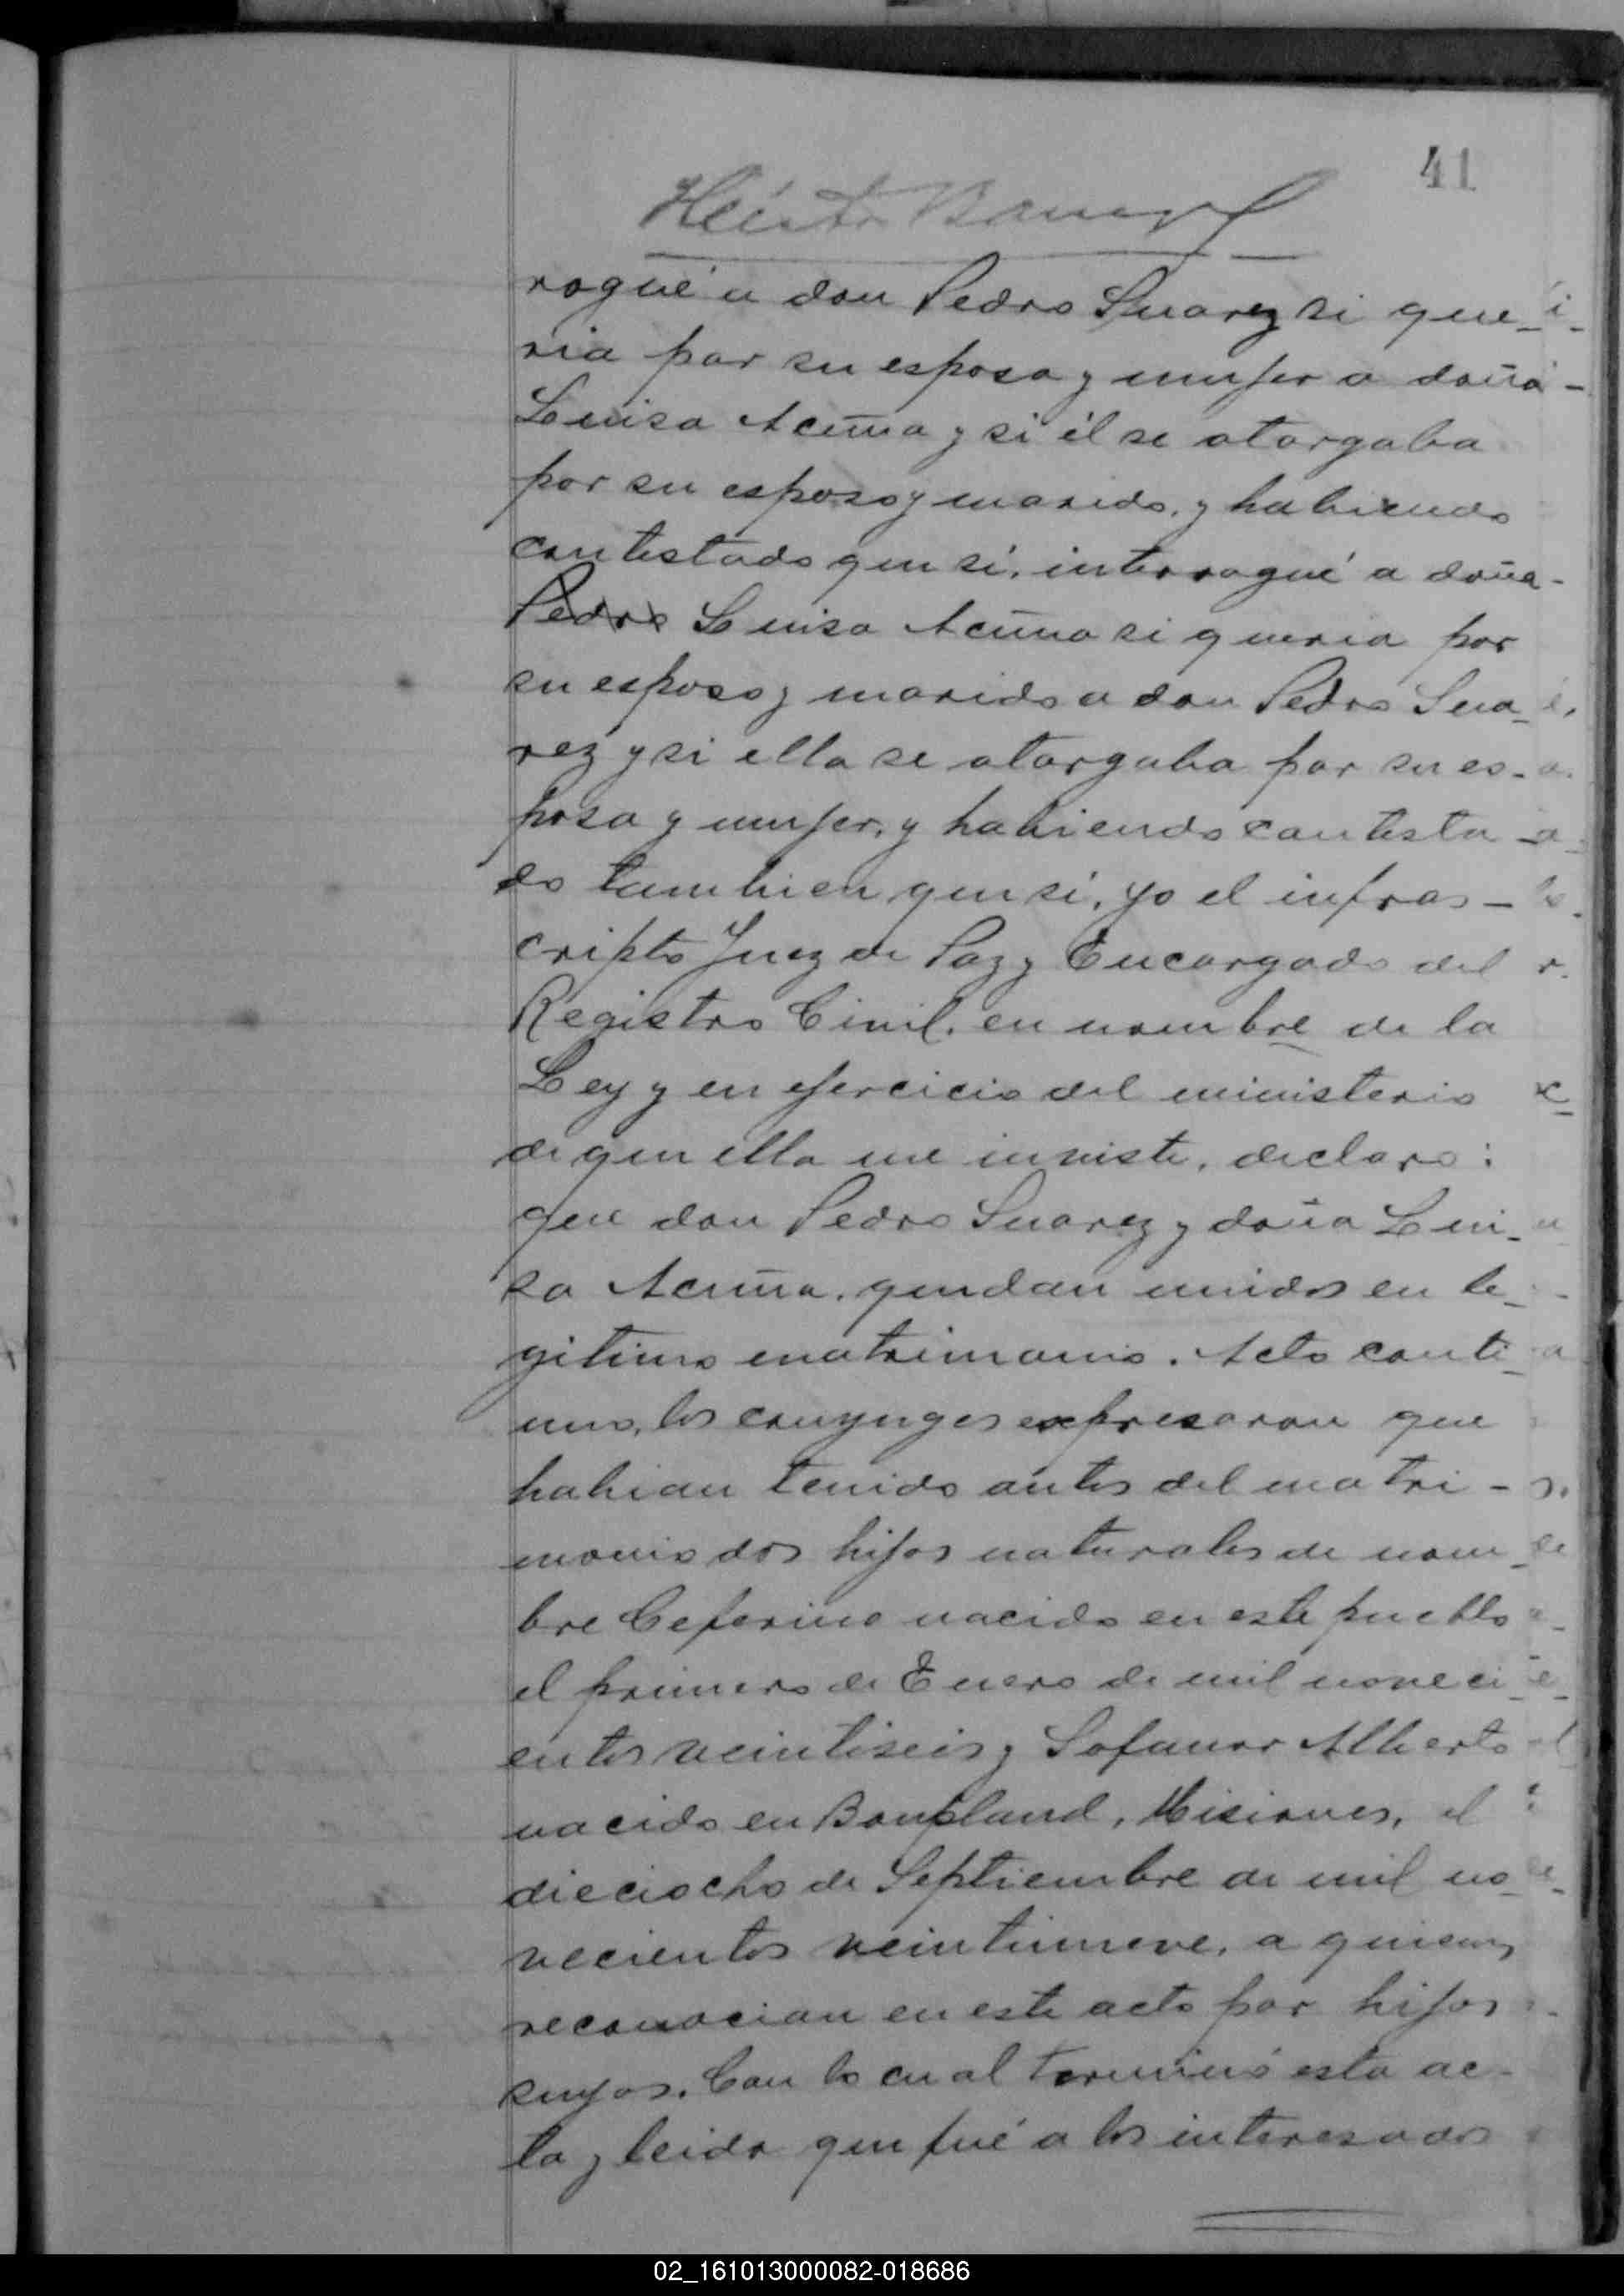 41
Héctor
rogué a don Pedro Suarez si que-
ria por su esposa y mujer a doña
Luisa Acuña y si él se otorgaba
por su esposo y marido, y habiendo
contestado que sí, interrogué a doña
Pedro Luisa Acuña si queria por
su esposo y marido a don Pedro Sua-
rez y si ella se otorgaba por su es-
posa y mujer, y habiendo contesta-
do tambien que sí, yo el infras-
cripto Juez de Paz y Encargado del
Registro Civil, en nombre de la
Ley y en ejercicio del ministerio
de que ella me inviste, declaro:
que don Pedro Suarez y doña Lui-
sa Acuña, quedan unidos en le-
gitimo matrimonio. Acto conti-
nuo, los conyuges expresaron que
habian tenido antes del matri-
monio dos hijos naturales de nom-
bre Ceferino nacido en este pueblo
el primero de Enero de mil noveci-
entos veintiseis y Sofanor Alberto
nacido en Bonpland, Misiones, el
dieciocho de Septiembre de mil no-
vecientos veintinueve, a quienes
reconocian en este acto por hijos
suyos. Con lo cual terminó esta ac-
ta y leida que fué a los interesados
02_161013000082-018686